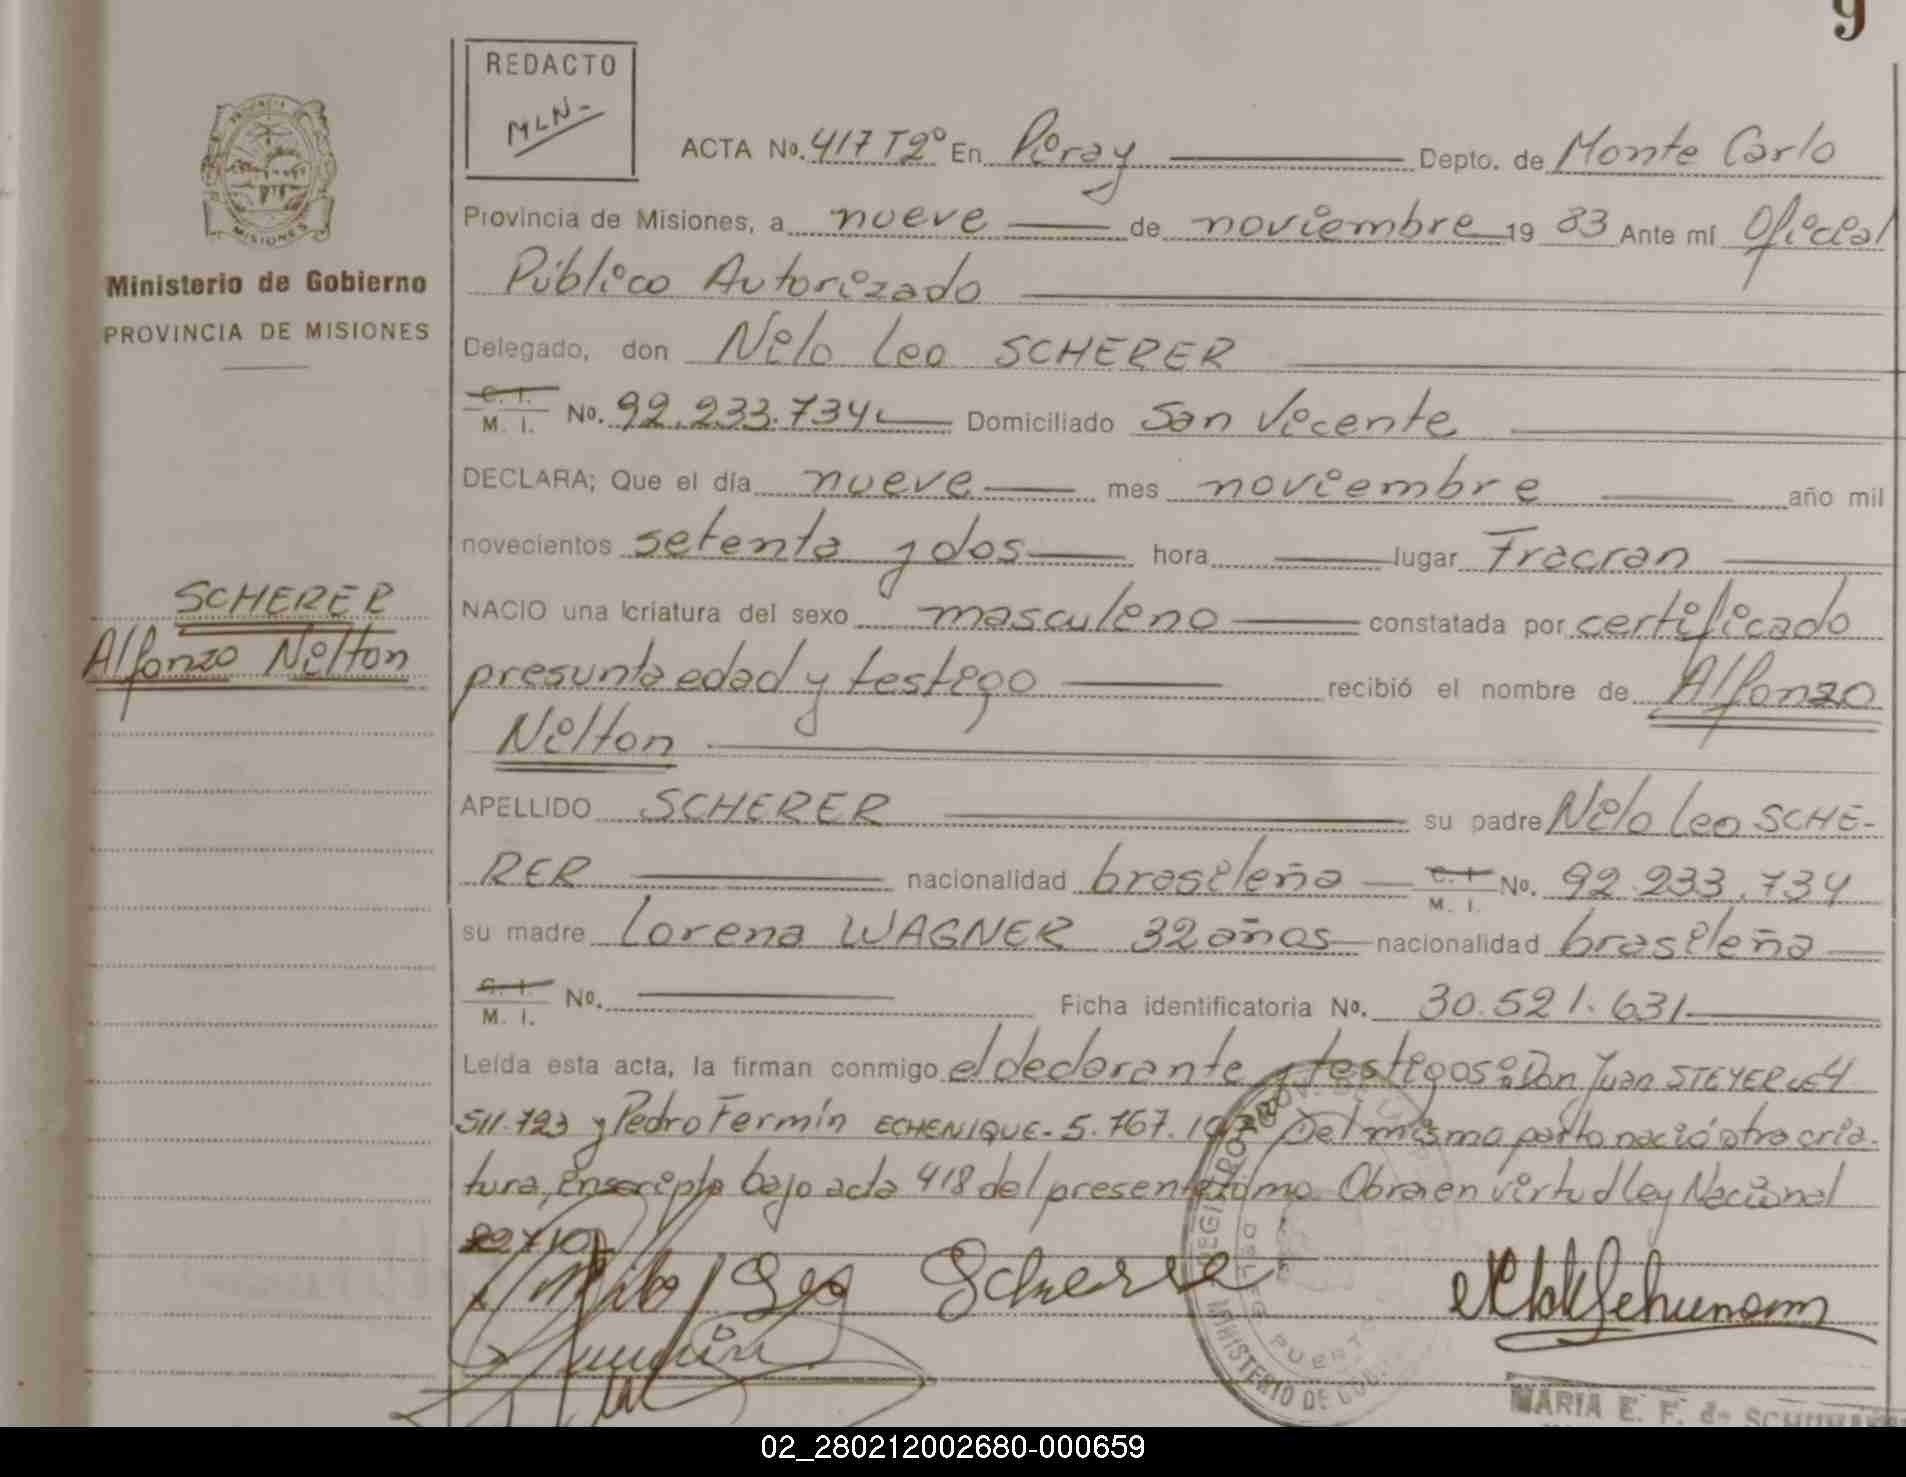 9
REDACTO
MLN-
ACTA No. 417 T2º En Piray Depto. de Monte Carlo
Provincia de Misiones, a nueve de noviembre 19 83 Ante mí Oficial
Público Autorizado
PROVINCIA
MISIONES
Ministerio de Gobierno
PROVINCIA DE MISIONES
Delegado, don Nilo Leo SCHERER
C. I.
M. I. No. 92.233.734 Domiciliado San Vicente
DECLARA; Que el día nueve mes noviembre año mil
novecientos setenta y dos hora lugar Fracran
SCHERER
Alfonzo Nilton
NACIO una criatura del sexo masculino constatada por certificado
presunta edad y testigo recibió el nombre de Alfonzo
Nilton
APELLIDO SCHERER su padre Nilo Leo SCHE-
RER nacionalidad brasileña C. I. M. I. No. 92.233.734
su madre Lorena WAGNER 32 años nacionalidad brasileña
C. I.
M. I. No. Ficha identificatoria No. 30.521.631
Leída esta acta, la firman conmigo el declarante y testigos: Don Juan STEYER 4
511.723 y Pedro Fermín ECHENIQUE- 5.767. Del mismo parto nació otra cria-
tura, inscripta bajo acta 418 del presente tomo. Obra en virtud ley Nacional
Nilo Leo Scherer
MINISTERIO DE
PUERTO
MARIA E. F. de
02_280212002680-000659